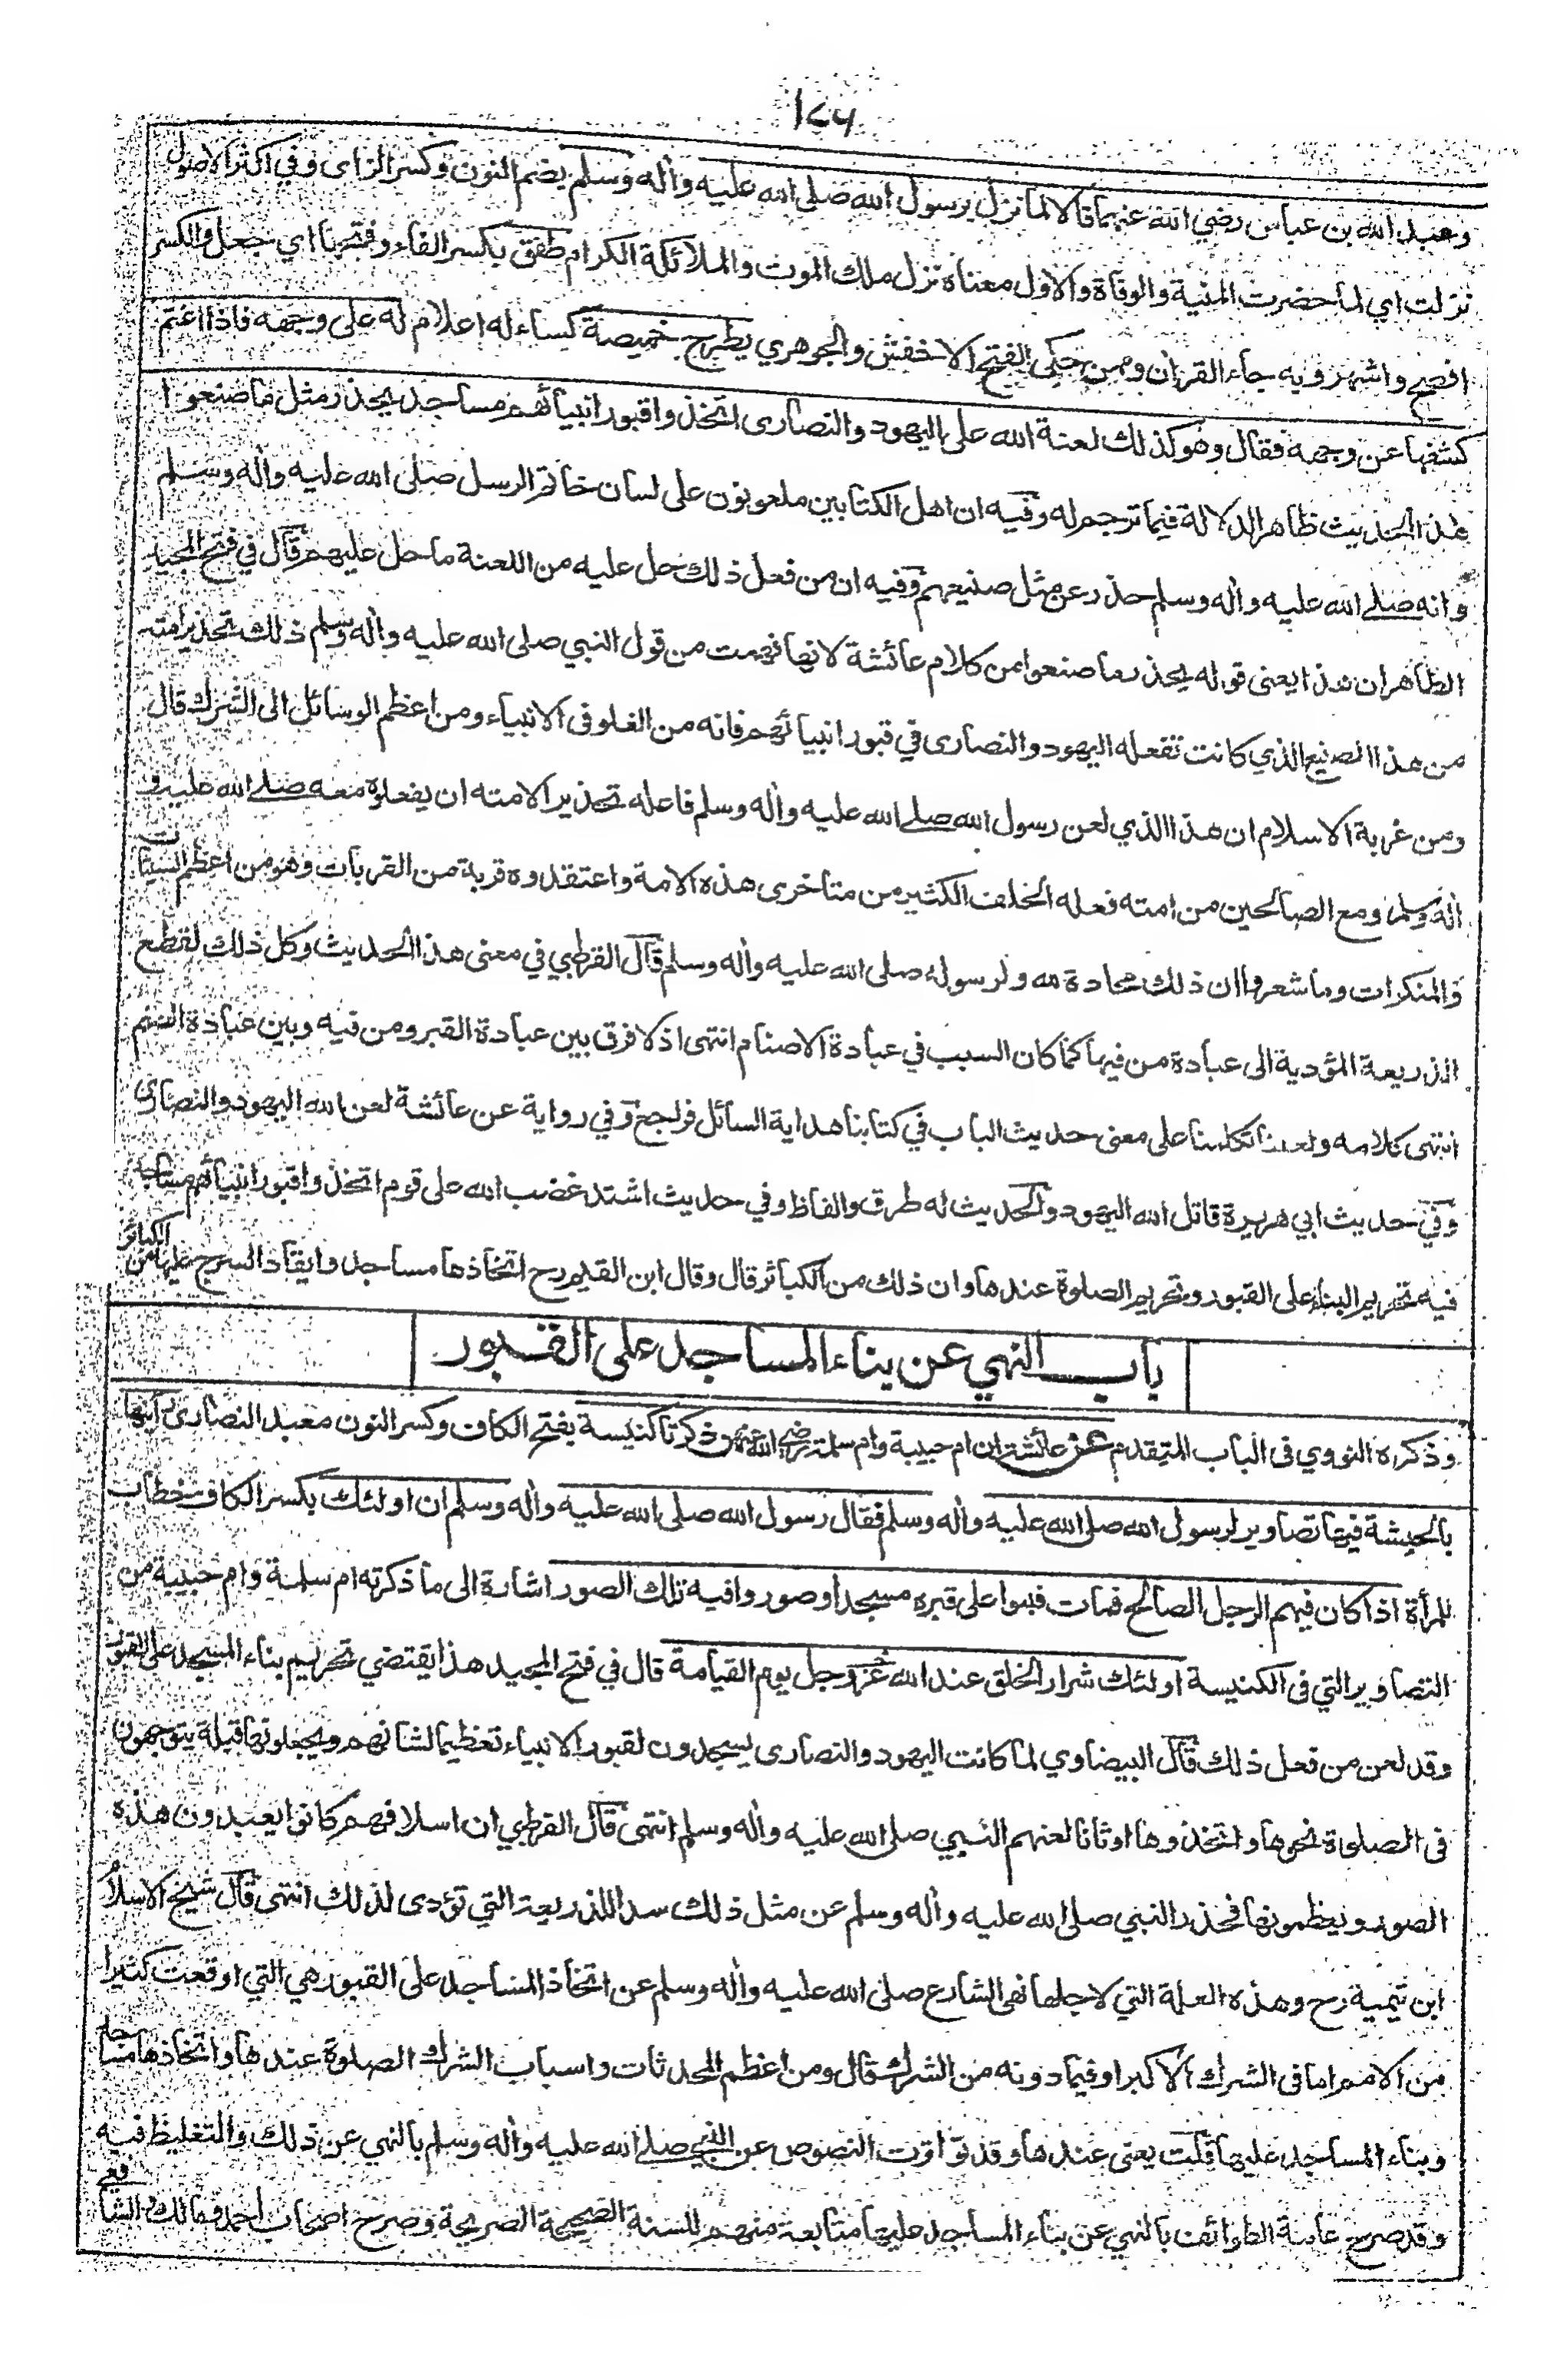 ١٧٦
وعبد الله بن عباس رضي الله عنهما قالا لما نزل برسول الله صلى الله عليه وأله وسلم بضم النون وكسر الزاى وفي اكثر الاصول
نزلت اي لما حضرت المنية والوفاة والاول معناه نزل ملك الموت والملائكة الكرام طفق بكسر الفاء وفتحها اي جعل والكسر
افصح واشهر وبه جاء القرأن وممن حكى الفتح الاخفش والجوهري يطرح خميصة كساء له اعلام له على وجهه فاذا اغتم
كشفها عن وجهه فقال وهو كذلك لعنة الله على اليهود والنصارى اتخذوا قبور انبيائهم مساجد يحذر مثل ما صنعوا
هذا الحديث ظاهر الدلالة فيما ترجم له وفيه ان اهل الكتابين ملعونون على لسان خاتم الرسل صلى الله عليه وأله وسلم
وانه صلى الله عليه وأله وسلم حذر عن مثل صنيعهم وفيه ان من فعل ذلك حل عليه من اللعنة ما حل عليهم قال في فتح المجيد
الظاهر ان هذا يعنى قوله يحذر ما صنعوا من كلام عائشة لانها فهمت من قول النبي صلى الله عليه وأله وسلم ذلك تحذير امته
من هذا الصنيع الذي كانت تفعله اليهود والنصارى في قبور انبيائهم فانه من الغلو في الانبياء ومن اعظم الوسائل الى الشرك قال
ومن غربة الاسلام ان هذا الذي لعن رسول الله صلى الله عليه وأله وسلم فاعله تحذيرا لامته ان يفعلوه معه صلى الله عليه و
أله وسلم ومع الصالحين من امته فعله الخلف الكثير من متأخرى هذه الامة واعتقدوه قربة من القربات وهو من اعظم السيئات
والمنكرات وما شعروا ان ذلك محادة لله ولرسوله صلى الله عليه وأله وسلم قال القرطبي في معنى هذا الحديث وكل ذلك لقطع
الذريعة المؤدية الى عبادة من فيها كما كان السبب في عبادة الاصنام انتهى اذ لا فرق بين عبادة القبر ومن فيه وبين عبادة الصنم
انتهى كلامه ولعلنا تكلمنا على معنى حديث الباب في كتابنا هداية السائل فراجع وفي رواية عن عائشة لعن الله اليهود والنصارى
وفي حديث ابي هريرة قاتل الله اليهود والحديث له طرق والفاظ وفي حديث اشتد غضب الله على قوم اتخذوا قبور انبيائهم مساجد
فيه تحريم البناء على القبور وتحريم الصلوة عندها وان ذلك من الكبائر قال وقال ابن القيم رح اتخاذها مساجد وايقاد السرج عليها من الكبائر
باب النهي عن بناء المساجد على القبور
وذكره النووي في الباب المتقدم عن عائشة ان ام حبيبة وام سلمة رضي الله عنهن ذكرتا كنيسة بفتح الكاف وكسر النون معبد النصارى رأينها
بالحبشة فيها تصاوير لرسول الله صلى الله عليه وأله وسلم فقال رسول الله صلى الله عليه وأله وسلم ان اولئك بكسر الكاف خطاب
للمرأة اذا كان فيهم الرجل الصالح فمات فبنوا على قبره مسجدا وصوروا فيه تلك الصور اشارة الى ما ذكرته ام سلمة وام حبيبة من
التصاوير التي في الكنيسة اولئك شرار الخلق عند الله عز وجل يوم القيامة قال في فتح المجيد هذا يقتضي تحريم بناء المسجد على القبور
وقد لعن من فعل ذلك قال البيضاوي لما كانت اليهود والنصارى يسجدون لقبور الانبياء تعظيما لشانهم ويجعلونها قبلة يتوجهون
في الصلوة نحوها واتخذوها اوثانا لعنهم النبي صلى الله عليه وأله وسلم انتهى قال القرطبي ان اسلافهم كانوا يعبدون هذه
الصور ويعظمونها فحذر النبي صلى الله عليه وأله وسلم عن مثل ذلك سدا للذريعة التي تؤدى لذلك انتهى قال شيخ الاسلام
ابن تيمية رح وهذه العلة التي لاجلها نهى الشارع صلى الله عليه وأله وسلم عن اتخاذ المساجد على القبور هي التي اوقعت كثيرا
من الامم اما في الشرك الاكبر او فيما دونه من الشرك قال ومن اعظم المحدثات واسباب الشرك الصلوة عندها واتخاذها مساجد
وبناء المساجد عليها قلت يعني عندها وقد تواترت النصوص عن النبي صلى الله عليه وأله وسلم بالنهي عن ذلك والتغليظ فيه
وقد صرح عامة الطوائف بالنهي عن بناء المساجد عليها متابعة منهم للسنة الصحيحة الصريحة وصرح اصحاب احمد ومالك والشافعي